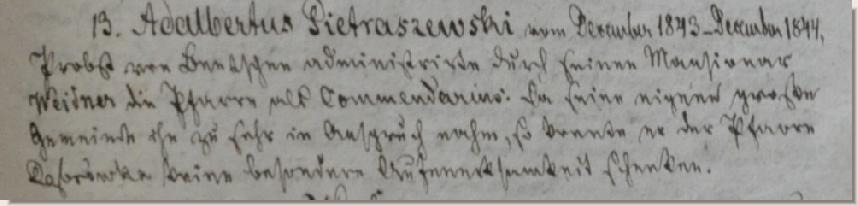 13. Adalbertus Pietraszewski vom December 1843–December 1844,
Probst von Bentschen administrirte durch seinen Mansionar
Weidner die Pfarre als Commendarius. Da seine eigene große
Gemeinde ihn zu sehr in Anspruch nahm, so konnte er der Pfarre
Dąbrówka keine besondere Aufmerksamkeit schenken.